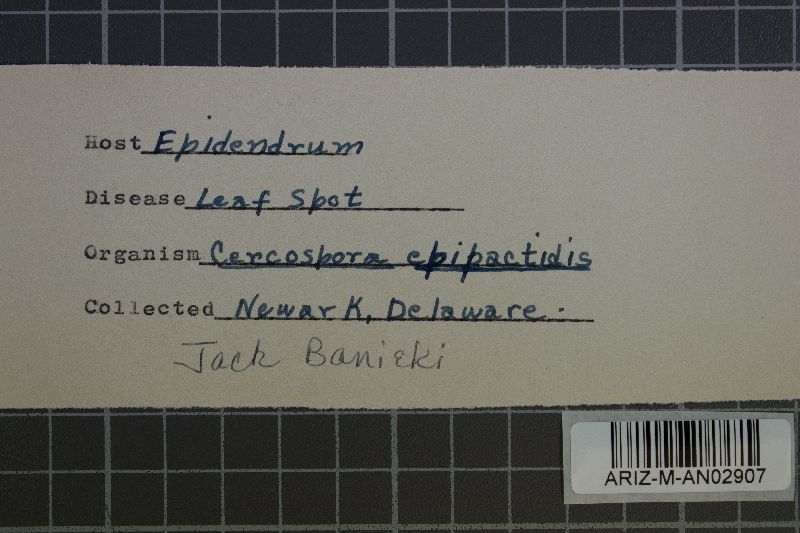 Host Epidendrum
Disease Leaf Spot
Organism Cercospora epipactidis
Collected Newark, Delaware.
Jack Banieki
ARIZ-M-AN02907